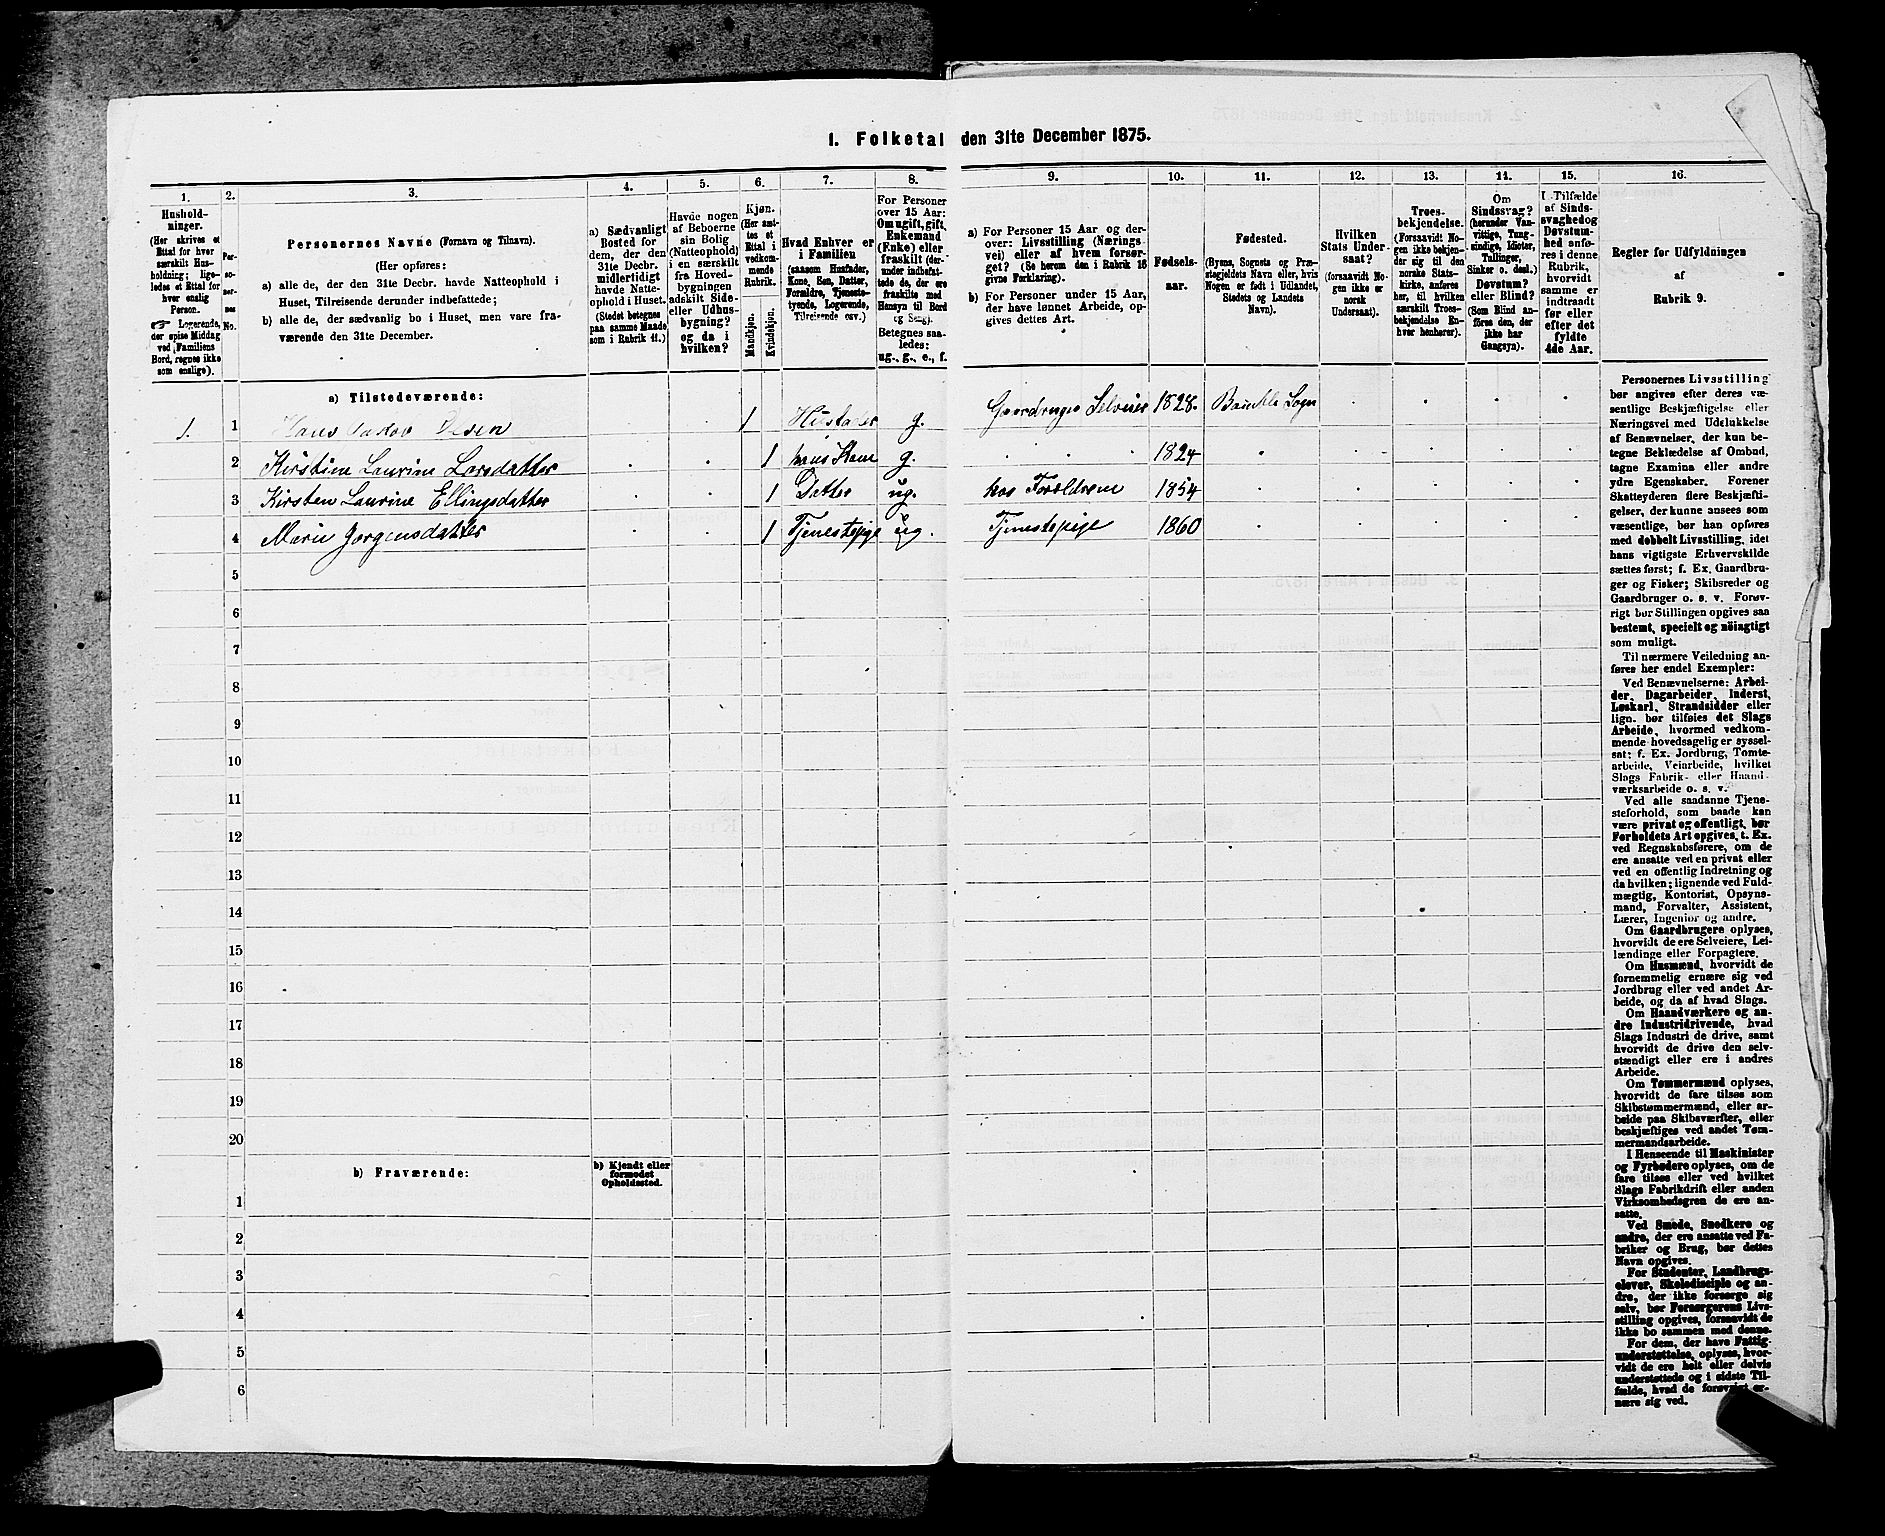 I. Folketal den 31te December 1875.
1. 2. 3. 4. 5. 6. 7. 8. 9. 10. 11. 12. 13. 14. 15. 16.
Hushold-
ninger.
(Her skrives et
Ettal for hver
særskilt Hus-
holdning; lige-
ledes et Ettal for
hver enslig
Person.
☞ Logerende,
der spise Middag
ved Familiens
Bord, regnes ikke
som enslige).
Per-
so-
ner-
nes
No.
Personernes Navne (Fornavn og Tilnavn).
(Her opføres:
a) alle de, der den 31te Decbr. havde Natteophold i
Huset, Tilreisende derunder indbefattede;
b) alle de, der sædvanlig bo i Huset, men vare fra-
værende den 31te December.
a) Sædvanligt
Bosted for
dem, der den
31te Decbr.
midlertidigt
havde Natte-
ophold i Huset.
(Stedet betegnes
paa samme Maade
som i Rubrik 11.)
Havde nogen
af Beboerne
sin Bolig
(Natteophold)
i en særskilt
fra Hoved-
bygningen
adskilt Side-
eller Udhus-
bygning?
og da i
hvilken?
Kjøn.
(Her sæt-
tes et
Ettal i
vedkom-
mende
Rubrik.
Mandkjøn.
Kvindekjøn.
Hvad Enhver er
i Familien
(saasom Husfader,
Kone, Søn, Datter,
Forældre, Tjeneste-
tyende, Logerende,
Tilreisende osv.)
For Personer
over 15 Aar:
Om ugift, gift,
Enkemand
(Enke) eller
fraskilt (der-
under indbefat-
tede de, der ere
fraskilte med
Hensyn til Bord
og Seng).
Betegnes saa-
ledes:
ug., g., e., f.
a) For Personer 15 Aar og der-
over: Livsstilling (Nærings-
vei) eller af hvem forsør-
get? (Se herom den i Rubrik 16
givne Forklaring).
b) For Personer under 15 Aar,
der have lønnet Arbeide, op-
gives dettes Art.
Fødsels-
aar.
Fødested.
(Byens, Sognets og Præ-
stegjeldets Navn eller, hvis
Nogen er født i Udlandet,
Stedets og Landets
Navn).
Hvilken
Stats Under-
saat?
(forsaavidt No-
gen ikke er
norsk
Undersaat).
Troes-
bekjendelse.
(Forsaavidt No-
gen ikke bekjen-
der sig til den
norske Stats-
kirke, anføres
her, til hvilken
særskilt Troes-
bekjendelse En-
hver henhører).
Om
Sindssvag?
(herunder Van-
vittige, Tung-
sindige, Idioter,
Tullinger,
Sinker o. desl.)
Døvstum?
eller Blind?
(Som Blind an-
føres den, der
ikke har
Gangsyn).
I Tilfælde
af Sinds-
svaghed og
Døvstum-
hed anfø-
res i denne
Rubrik,
hvorvidt
samme er
indtraadt
før eller
efter det
fyldte
4de Aar.
Regler for Udfyldningen
af
Rubrik 9.
a) Tilstedeværende:
1. 1 Hans Jakob Olsen 1 Husfader g. Gaardbruger Selveier 1828. Bamble Sogn
2 Kirstine Laurine Larsdatter 1 hans Kone g. 1824
3 Kirsten Laurine Ellingsdatter 1 Datter ug. hos Forældrene 1854
4 Marie Jørgensdatter 1 Tjenestepige ug. Tjenestepige 1860
5
6
7
8
9
10
11
12
13
14
15
16
17
18
19
20
b) Fraværende:
b) Kjendt eller
formodet
Opholdssted.
1
2
3
4
5
6
Personernes Livsstilling
bør angives efter deres væ-
sentlige Beskjæftigelse eller
Næringsvei med Udelukkelse
af Benævnelser, der kun be-
tegne Beklædelse af Ombud,
tagne Examina eller andre
ydre Egenskaber. Forener
Skatteyderen flere Beskjæfti-
gelser, der kunne ansees som
væsentlige, bør han opføres
med dobbelt Livsstilling, idet
hans vigtigste Erhvervskilde
sættes først; f. Ex. Gaardbru-
ger og Fisker; Skibsreder og
Gaardbruger o. s. v. Forøv-
rigt bør Stillingen opgives saa
bestemt, specielt og nöiagtigt
som muligt.
Til nærmere Veiledning an-
føres her endel Exempler:
Ved Benævnelserne: Arbei-
der, Dagarbeider, Inderst,
Løskarl, Strandsidder eller
lign. bør tilføies det Slags
Arbeide, hvormed vedkom-
mende hovedsagelig er syssel-
sat; f. Ex. Jordbrug, Tømte-
arbeide, Veiarbeide, hvilket
Slags Fabrik- eller Haand-
værksarbeide o. s. v.
Ved alle saadanne Tjene-
steforhold, som baade kan
være privat og offentligt, bør
Forholdets Art opgives, t. Ex.
ved Regnskabsførere, om de
ere ansatte ved en privat eller
ved en offentlig Indretning og
da hvilken; lignende ved Fuld-
mægtig, Kontorist, Opsyns-
mand, Forvalter, Assistent,
Lærer, Ingeniør og andre.
Om Gaardbrugere oplyses,
hvorvidt de ere Selveiere, Lei-
lændinge eller Forpagtere.
Om Husmænd, hvorvidt de
fornemmelig ernære sig ved
Jordbrug eller ved andet Ar-
beide, og da af hvad Slags.
Om Haandværkere og an-
dre Industridrivende, hvad
Slags Industri de drive, samt
hvorvidt de drive den selv-
stændigt eller ere i andres
Arbeide.
Om Tømmermænd oplyses,
hvorvidt de fare tilsøs som
Skibstømmermænd, eller ar-
beide paa Skibsværfter, eller
beskjæftiges ved andet Tøm-
mermandsarbeide.
I Henseende til Maskinister
og Fyrbødere oplyses, om de
fare tilsøs eller ved hvilket
Slags Fabrikdrift eller anden
Virksomhedsgren de ere an-
satte.
Ved Smede, Snedkere og
andre, der ere ansatte ved Fa-
briker og Brug, bør dettes
Navn opgives.
For Studenter, Landbrugs-
elever, Skoledisciple og an-
dre, der ikke forsørge sig
selv, bør Forsørgerens Livs-
stilling opgives, forsaavidt de
ikke bo sammen med denne.
For dem, der have Fattig-
understøttelse, oplyses, hvor-
vidt de ere helt eller delvis
understøttede og i sidste Til-
fælde, hvad de forøvrigt er-
nære sig ved.